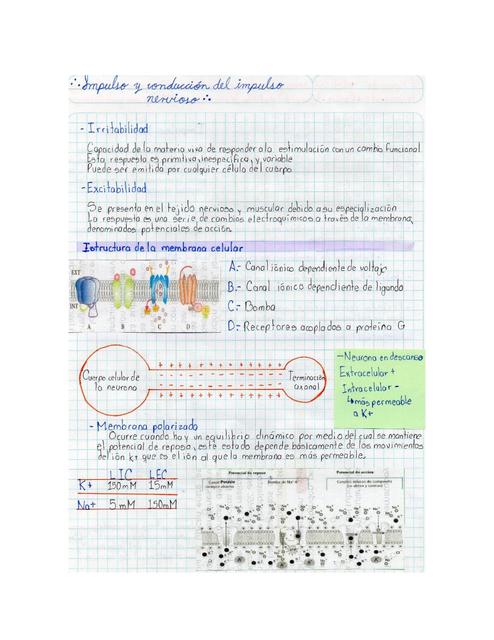 ∴ Impulso y conducción del impulso
nervioso ∴
- Irritabilidad
Capacidad de la materia viva de responder a la estimulación con un cambio funcional
Esta respuesta es primitiva, inespecífica, y variable
Puede ser emitida por cualquier célula del cuerpo
- Excitabilidad
Se presenta en el tejido nervioso y muscular debido a su especialización
La respuesta es una serie de cambios electroquímicos a través de la membrana,
denominados potenciales de acción.
Estructura de la membrana celular
EXT
INT
A B C D
A.- Canal iónico dependiente de voltaje
B.- Canal iónico dependiente de ligando
C.- Bomba
D.- Receptores acoplados a proteína G
Cuerpo celular de
la neurona
Terminación
axonal
- Neurona en descanso
Extracelular +
Intracelular -
↳ más permeable
a K+
- Membrana polarizado
Ocurre cuando hay un equilibrio dinámico por medio del cual se mantiene
el potencial de reposo, este estado depende básicamente de los movimientos
del ión K+ que es el ión al que la membrana es más permeable.
LIC LEC
K+ 150mM 15mM
Na+ 5mM 150mM
Potencial de reposo
Potencial de acción